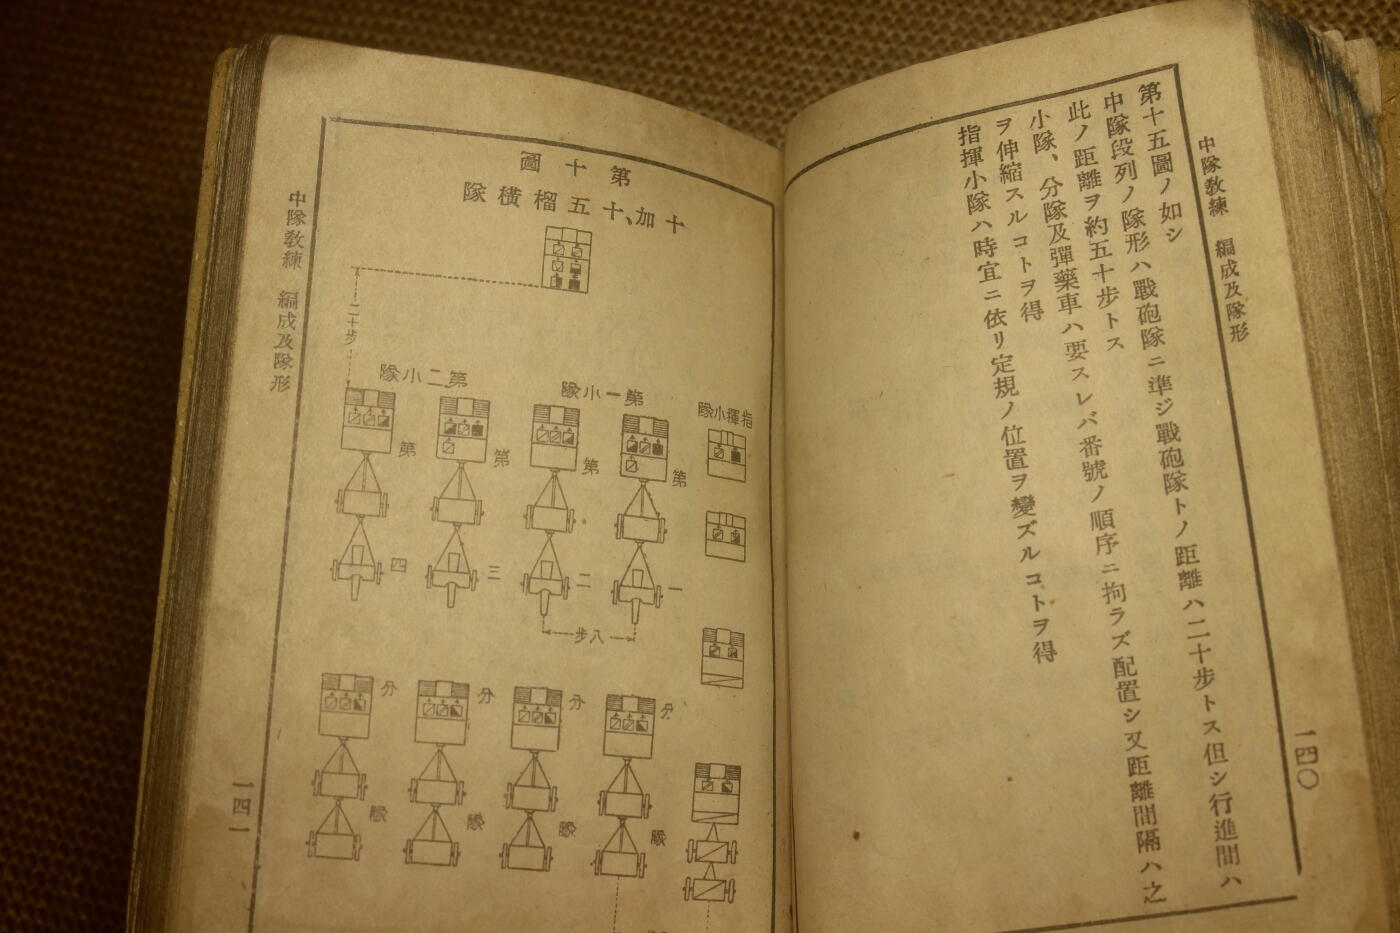 中隊教練　編成及隊形
一四〇
第十五圖ノ如シ
中隊段列ノ隊形ハ戰砲隊ニ準ジ戰砲隊トノ距離ハ二十步トス但シ行進間ハ
此ノ距離ヲ約五十步トス
小隊、分隊及彈藥車ハ要スレバ番號ノ順序ニ拘ラズ配置シ又距離間隔ハ之
ヲ伸縮スルコトヲ得
指揮小隊ハ時宜ニ依リ定規ノ位置ヲ變ズルコトヲ得
第十圖
十加、十五榴橫隊
二十步
指揮小隊
第一小隊
第二小隊
第一分隊
第二分隊
第三分隊
第四分隊
八步
中隊教練　編成及隊形
一四一